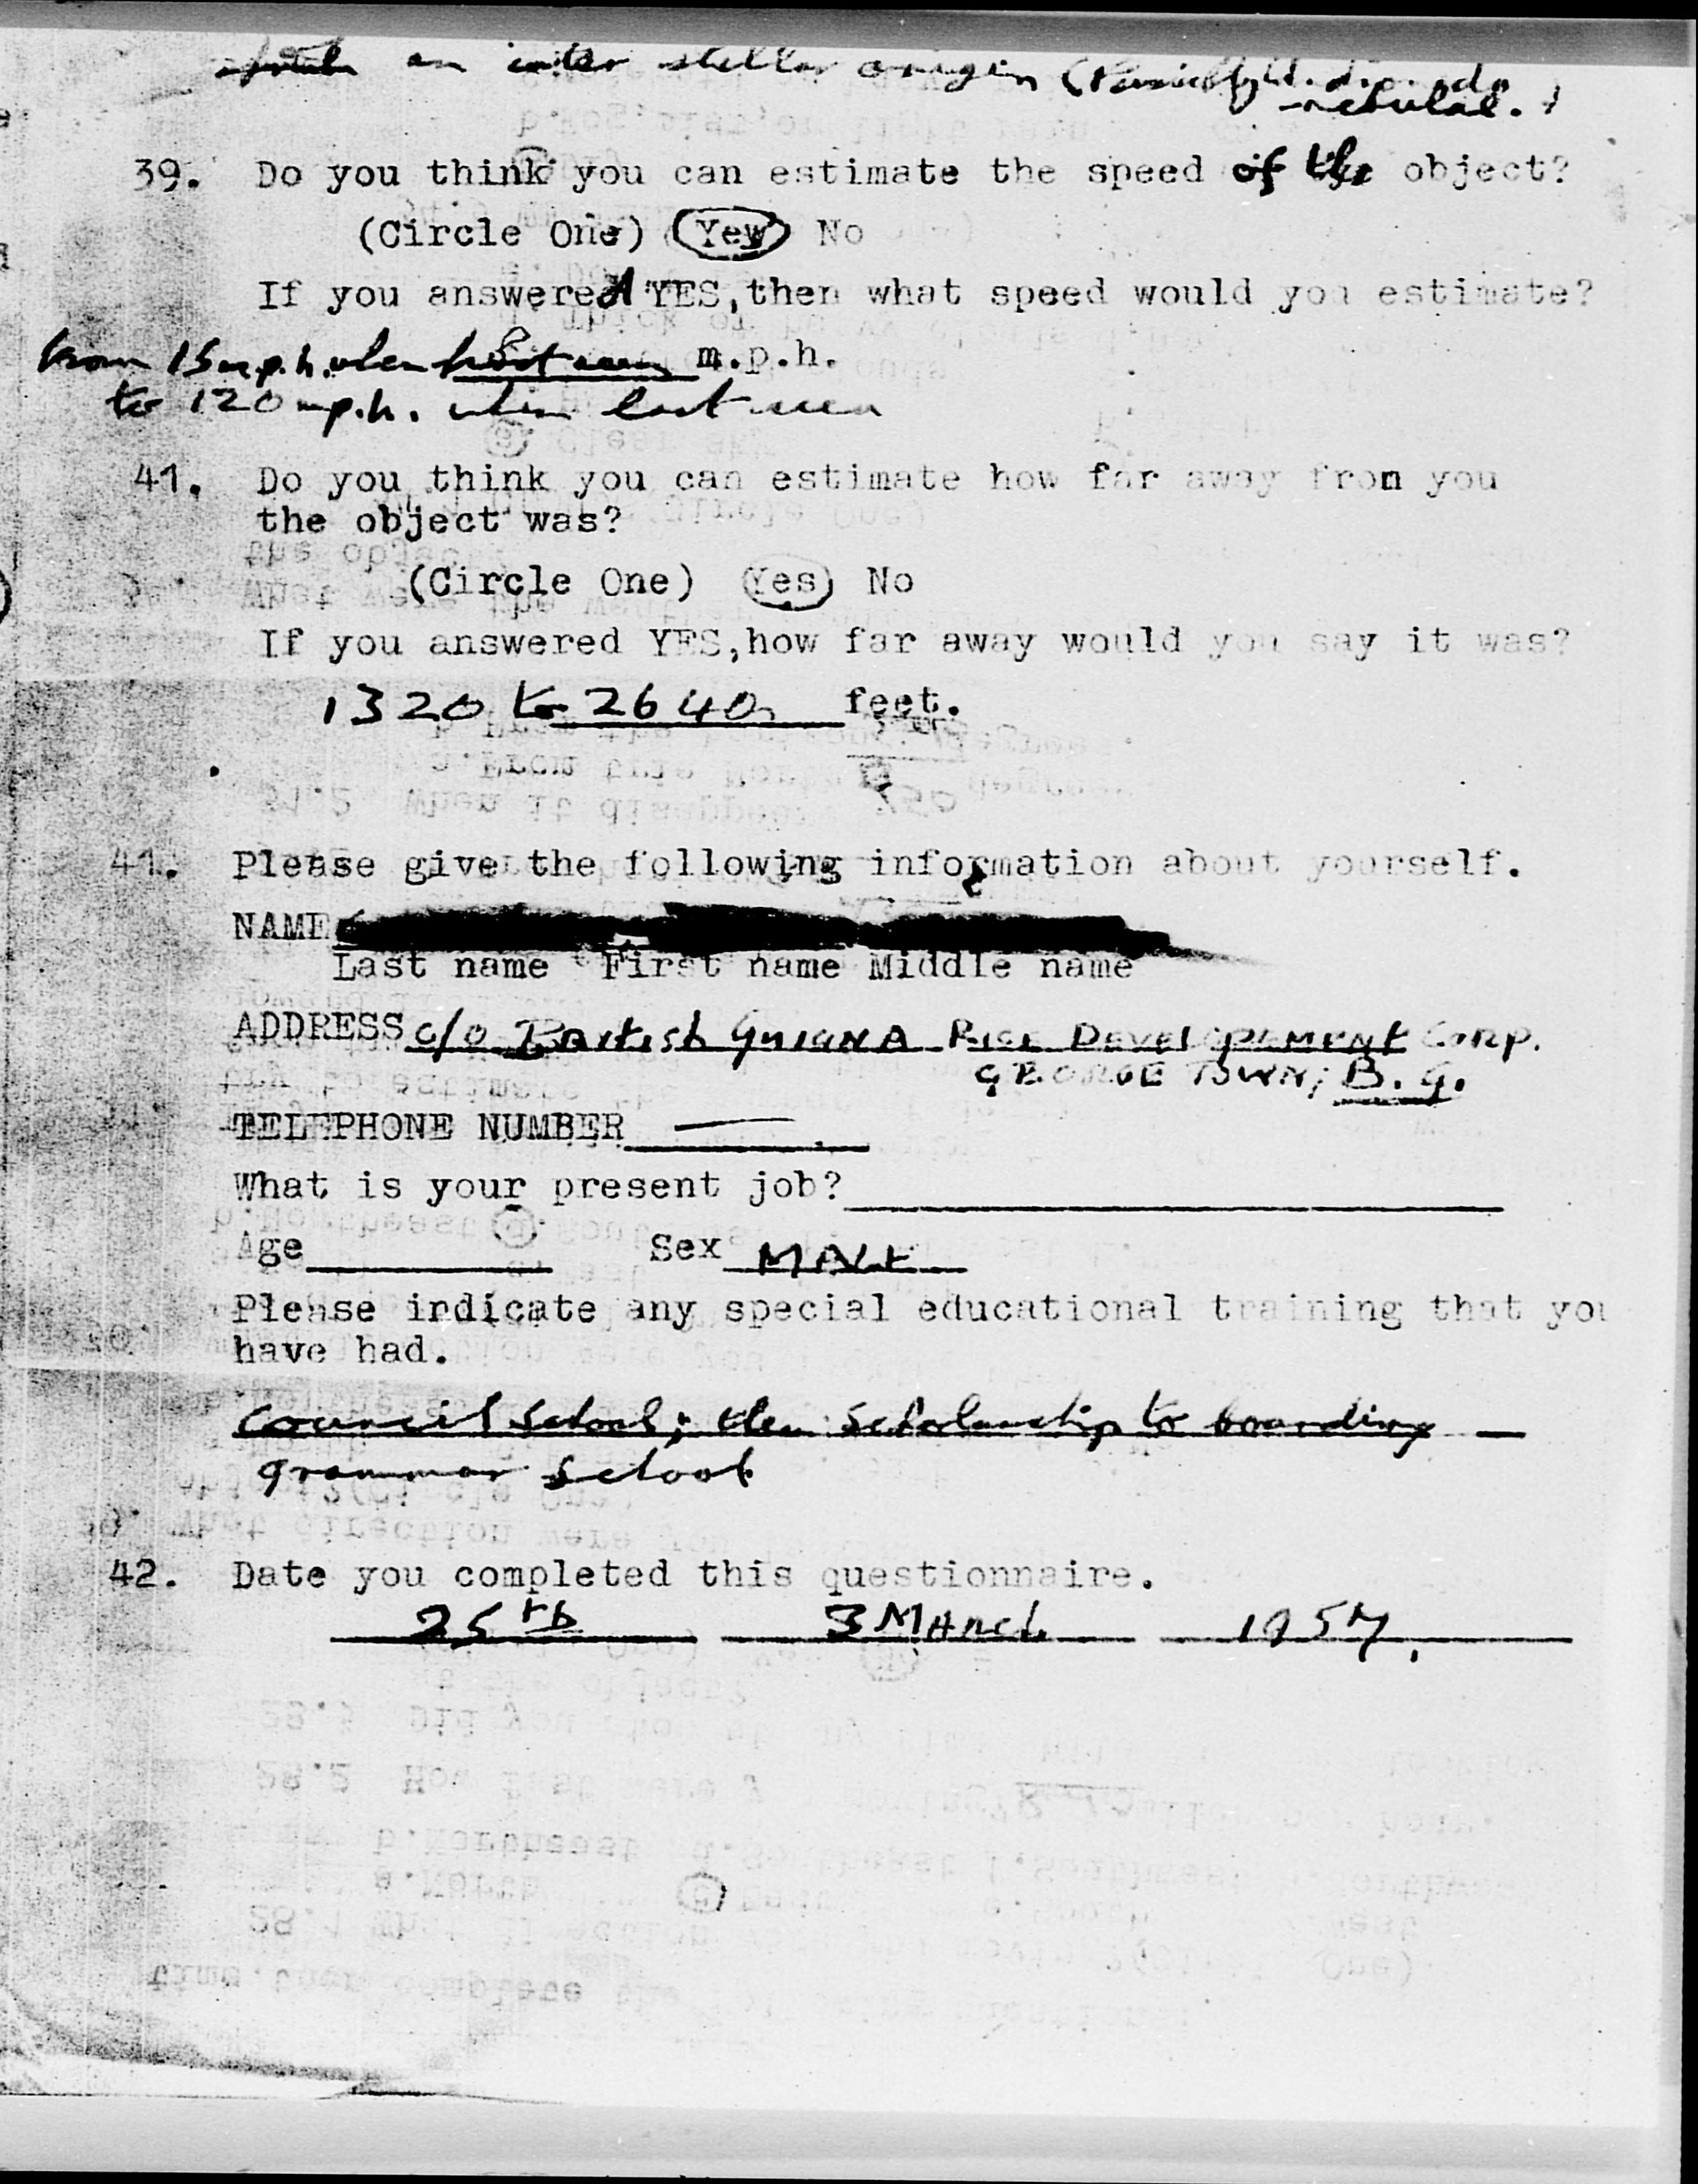 an inter stellar origin (
nebulae.)
39. Do you think you can estimate the speed of the object?
(Circle One) Yew No
If you answered YES,then what speed would you estimate?
from 15 m.p.h. when first seen m.p.h.
to 120 m.p.h. when last seen
41. Do you think you can estimate how far away from you
the object was?
(Circle One) Yes No
If you answered YES,how far away would you say it was?
1320 to 2640 feet.
41. Please give the following information about yourself.
NAME
Last name First name Middle name
ADDRESS c/o British Guiana Rice Developement Corp.
GEORGE TOWN, B.G.
TELEPHONE NUMBER —
What is your present job?
Age Sex MALE
Please indicate any special educational training that you
have had.
Council School; then Scholarship to boarding
grammar School.
42. Date you completed this questionnaire.
25th 3 March 1957.